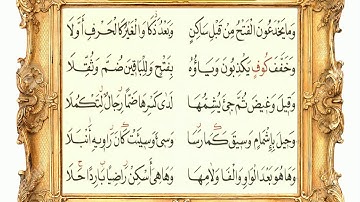 وَمَا يَخْدَعُونَ الْفَتْحُ مِنْ قَبْلِ سَاكِنٍ وَبَعْدُ ذَكَا وَالْغَيْرُ كَالْحَرْفِ أَوَّلَا
وَخَفَّفَ كُوفٍ يَكْذِبُونَ وَيَاؤُهُ بِفَتْحٍ وَلِلْبَاقِينَ ضُمَّ وَثُقِّلَا
وَقِيلَ وَغِيضَ ثُمَّ جِيءَ يُشِمُّهَا لَدَى كَسْرِهَا ضَمًّا رِجَالٌ لِتَكْمُلَا
وَحِيلَ بِإِشْمَامٍ وَسِيقَ كَمَا رَسَا وَسِيءَ وَسِيئَتْ كَانَ رَاوِيهِ أَنْبَلَا
وَهَا هُوَ بَعْدَ الْوَاوِ وَالْفَا وَلَامِهَا وَهَا هِيَ أَسْكِنْ رَاضِيًا بَارِدًا حَلَا